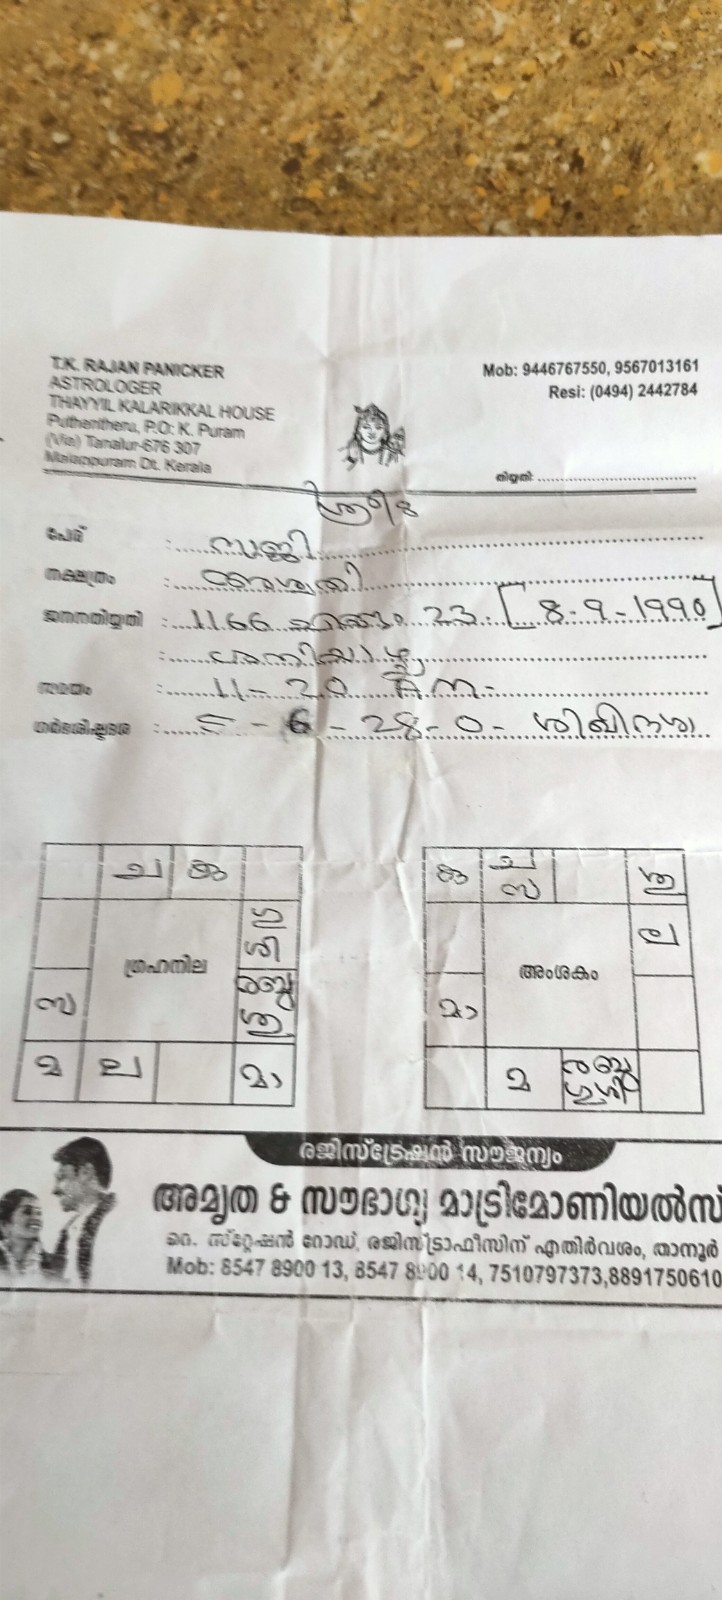 T.K. RAJAN PANICKER
ASTROLOGER
THAYYIL KALARIKKAL HOUSE
Puthentheru, P.O: K. Puram
(Via) Tanalur-676 307
Malappuram Dt. Kerala
Mob: 9446767550, 9567013161
Resi: (0494) 2442784
തിയ്യതി:
പേര് : സജി
നക്ഷത്രം : അശ്വതി
ജനനതിയ്യതി : 1166 ചിങ്ങം 23. [8-9-1990]
: ശനിയാഴ്ച
സമയം : 11-20 AM-
ഗർഭശിഷ്ടദശ : 6 - 28-0- ശിഖിദശ
ച കു
ഗു
ശി
ഗ്രഹനില
സ
ര ബു
ശു
മ ല മാ
കു ച
സ
ശു
ല
അംശകം
മാ
മ ര ബു
ഗു ശി
രജിസ്ട്രേഷൻ സൗജന്യം
അമൃത & സൗഭാഗ്യ മാട്രിമോണിയൽസ്
റെ. സ്റ്റേഷൻ റോഡ്, രജിസ്ട്രാഫീസിന് എതിർവശം, താനൂർ
Mob: 8547 8900 13, 8547 8900 14, 7510797373,8891750610